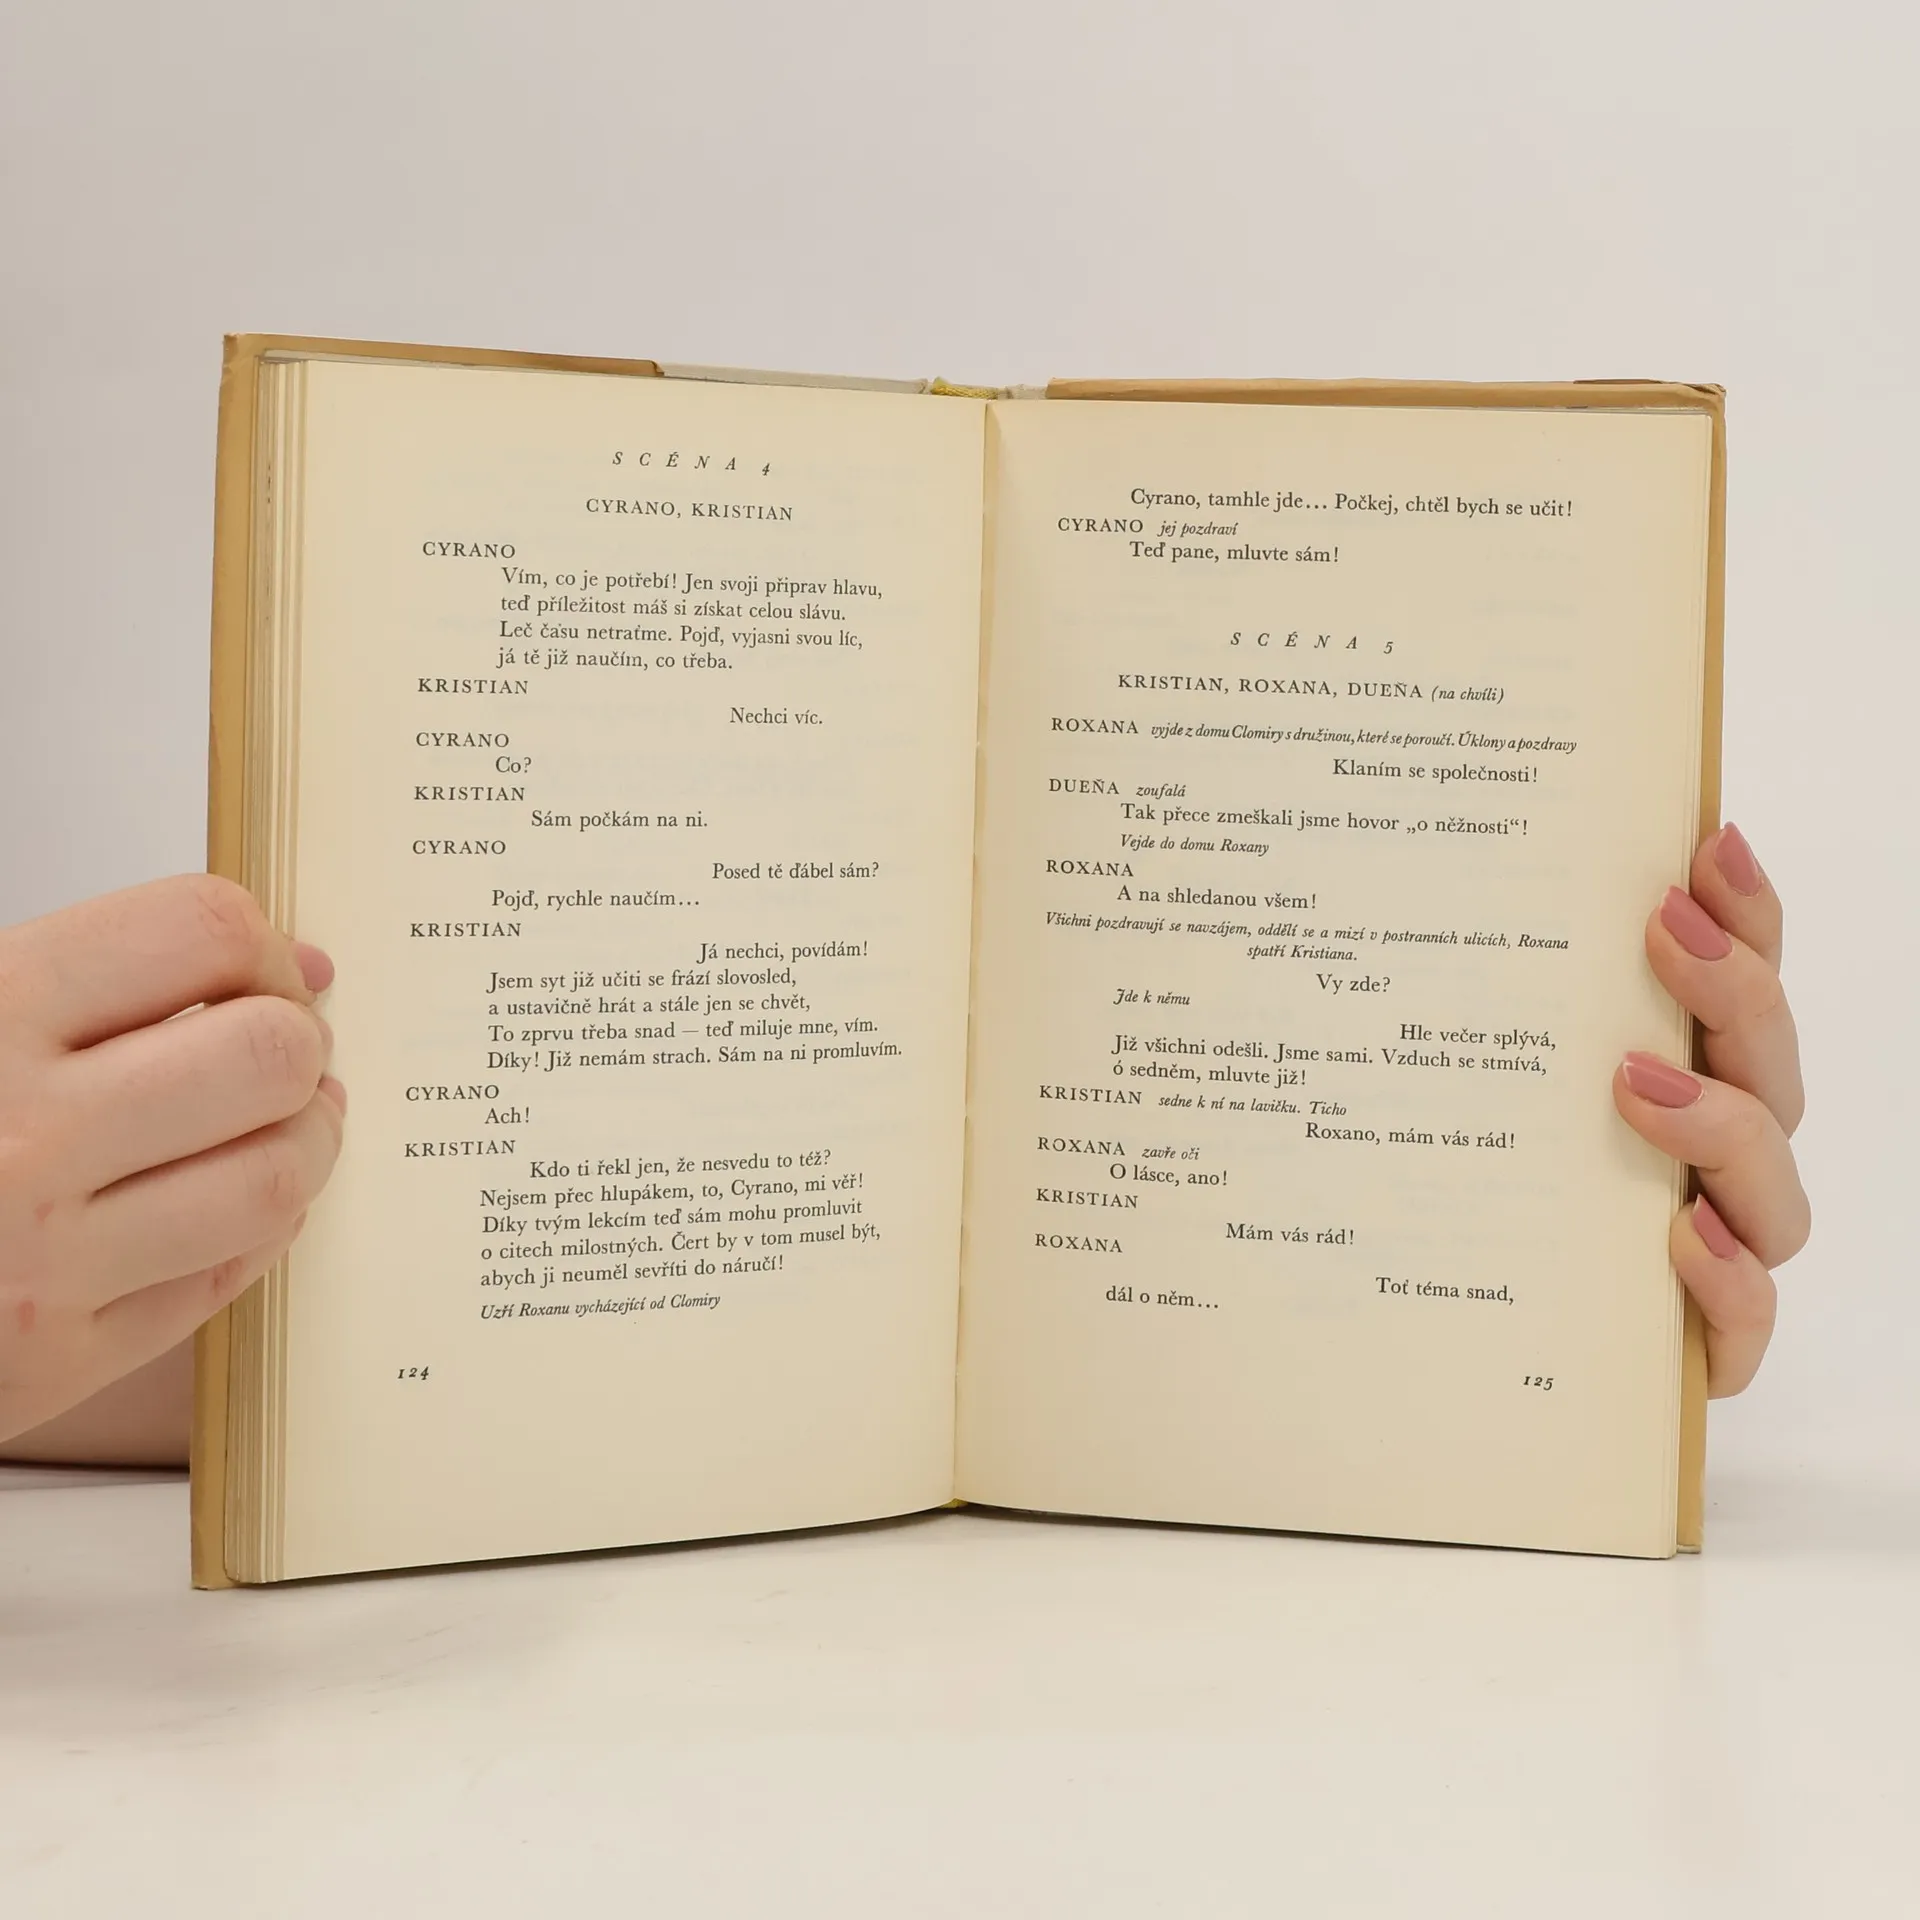 SCÉNA 4
CYRANO, KRISTIAN
CYRANO
Vím, co je potřebí! Jen svoji připrav hlavu,
teď příležitost máš si získat celou slávu.
Leč času netraťme. Pojď, vyjasni svou líc,
já tě již naučím, co třeba.
KRISTIAN
Nechci víc.
CYRANO
Co?
KRISTIAN
Sám počkám na ni.
CYRANO
Posed tě ďábel sám?
Pojď, rychle naučím...
KRISTIAN
Já nechci, povídám!
Jsem syt již učiti se frází slovosled,
a ustavičně hrát a stále jen se chvět,
To zprvu třeba snad — teď miluje mne, vím.
Díky! Již nemám strach. Sám na ni promluvím.
CYRANO
Ach!
KRISTIAN
Kdo ti řekl jen, že nesvedu to též?
Nejsem přec hlupákem, to, Cyrano, mi věř!
Díky tvým lekcím teď sám mohu promluvit
o citech milostných. Čert by v tom musel být,
abych ji neuměl sevříti do náručí!
Uzří Roxanu vycházející od Clomiry
124
Cyrano, tamhle jde... Počkej, chtěl bych se učit!
CYRANO jej pozdraví
Teď pane, mluvte sám!
SCÉNA 5
KRISTIAN, ROXANA, DUEŇA (na chvíli)
ROXANA vyjde z domu Clomiry s družinou, které se poroučí. Úklony a pozdravy
Klaním se společnosti!
DUEŇA zoufalá
Tak přece zmeškali jsme hovor „o něžnosti“!
Vejde do domu Roxany
ROXANA
A na shledanou všem!
Všichni pozdravují se navzájem, oddělí se a mizí v postranních ulicích, Roxana
spatří Kristiana.
Vy zde?
Jde k němu
Hle večer splývá,
Již všichni odešli. Jsme sami. Vzduch se stmívá,
ó sedněm, mluvte již!
KRISTIAN sedne k ní na lavičku. Ticho
Roxano, mám vás rád!
ROXANA zavře oči
O lásce, ano!
KRISTIAN
Mám vás rád!
ROXANA
Toť téma snad,
dál o něm...
125